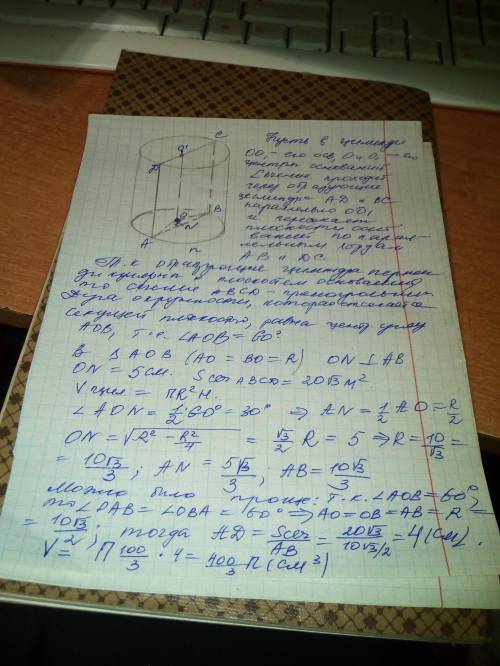 C
O'
D
O
B
N
A
n
Пусть в цилиндр
OO₁ - его ось, O и O₁ — его
центры оснований
Сечение проходит
через образующие
цилиндра AD и BC
параллельно OO₁
и пересекает
плоскости осно-
ваний по парал-
лельным хордам
AB и DC.
Т.к образующие цилиндра перпен-
ди плоскостям оснований,
то сечение ABCD - прямоугольник
Дуга окружности, которая отсекается
секущей плоскостью, равна центр. углу
AOB, т.е. ∠AOB = 60°
В △ AOB (AO = BO = R) ON ⊥ AB
ON = 5 см. Sсеч ABCD = 20√3 м²
V цил = ПR²H.
∠AON = 1/2 60° = 30° ⇒ AN = 1/2 AO = R/2
ON = √(R² - R²/4) = √3/2 R = 5 ⇒ R = 10/√3 =
= 10√3/3; AN = 5√3/3; AB = 10√3/3
Можно было проще: т.к. ∠AOB = 60°,
то ∠OAB = ∠OBA = 60° ⇒ AO = OB = AB = R =
= 10√3/2; тогда AD = Sсеч/AB = 20√3/10√3/2 = 4 (см).
V = П 100/3 · 4 = 400/3 П (см³)